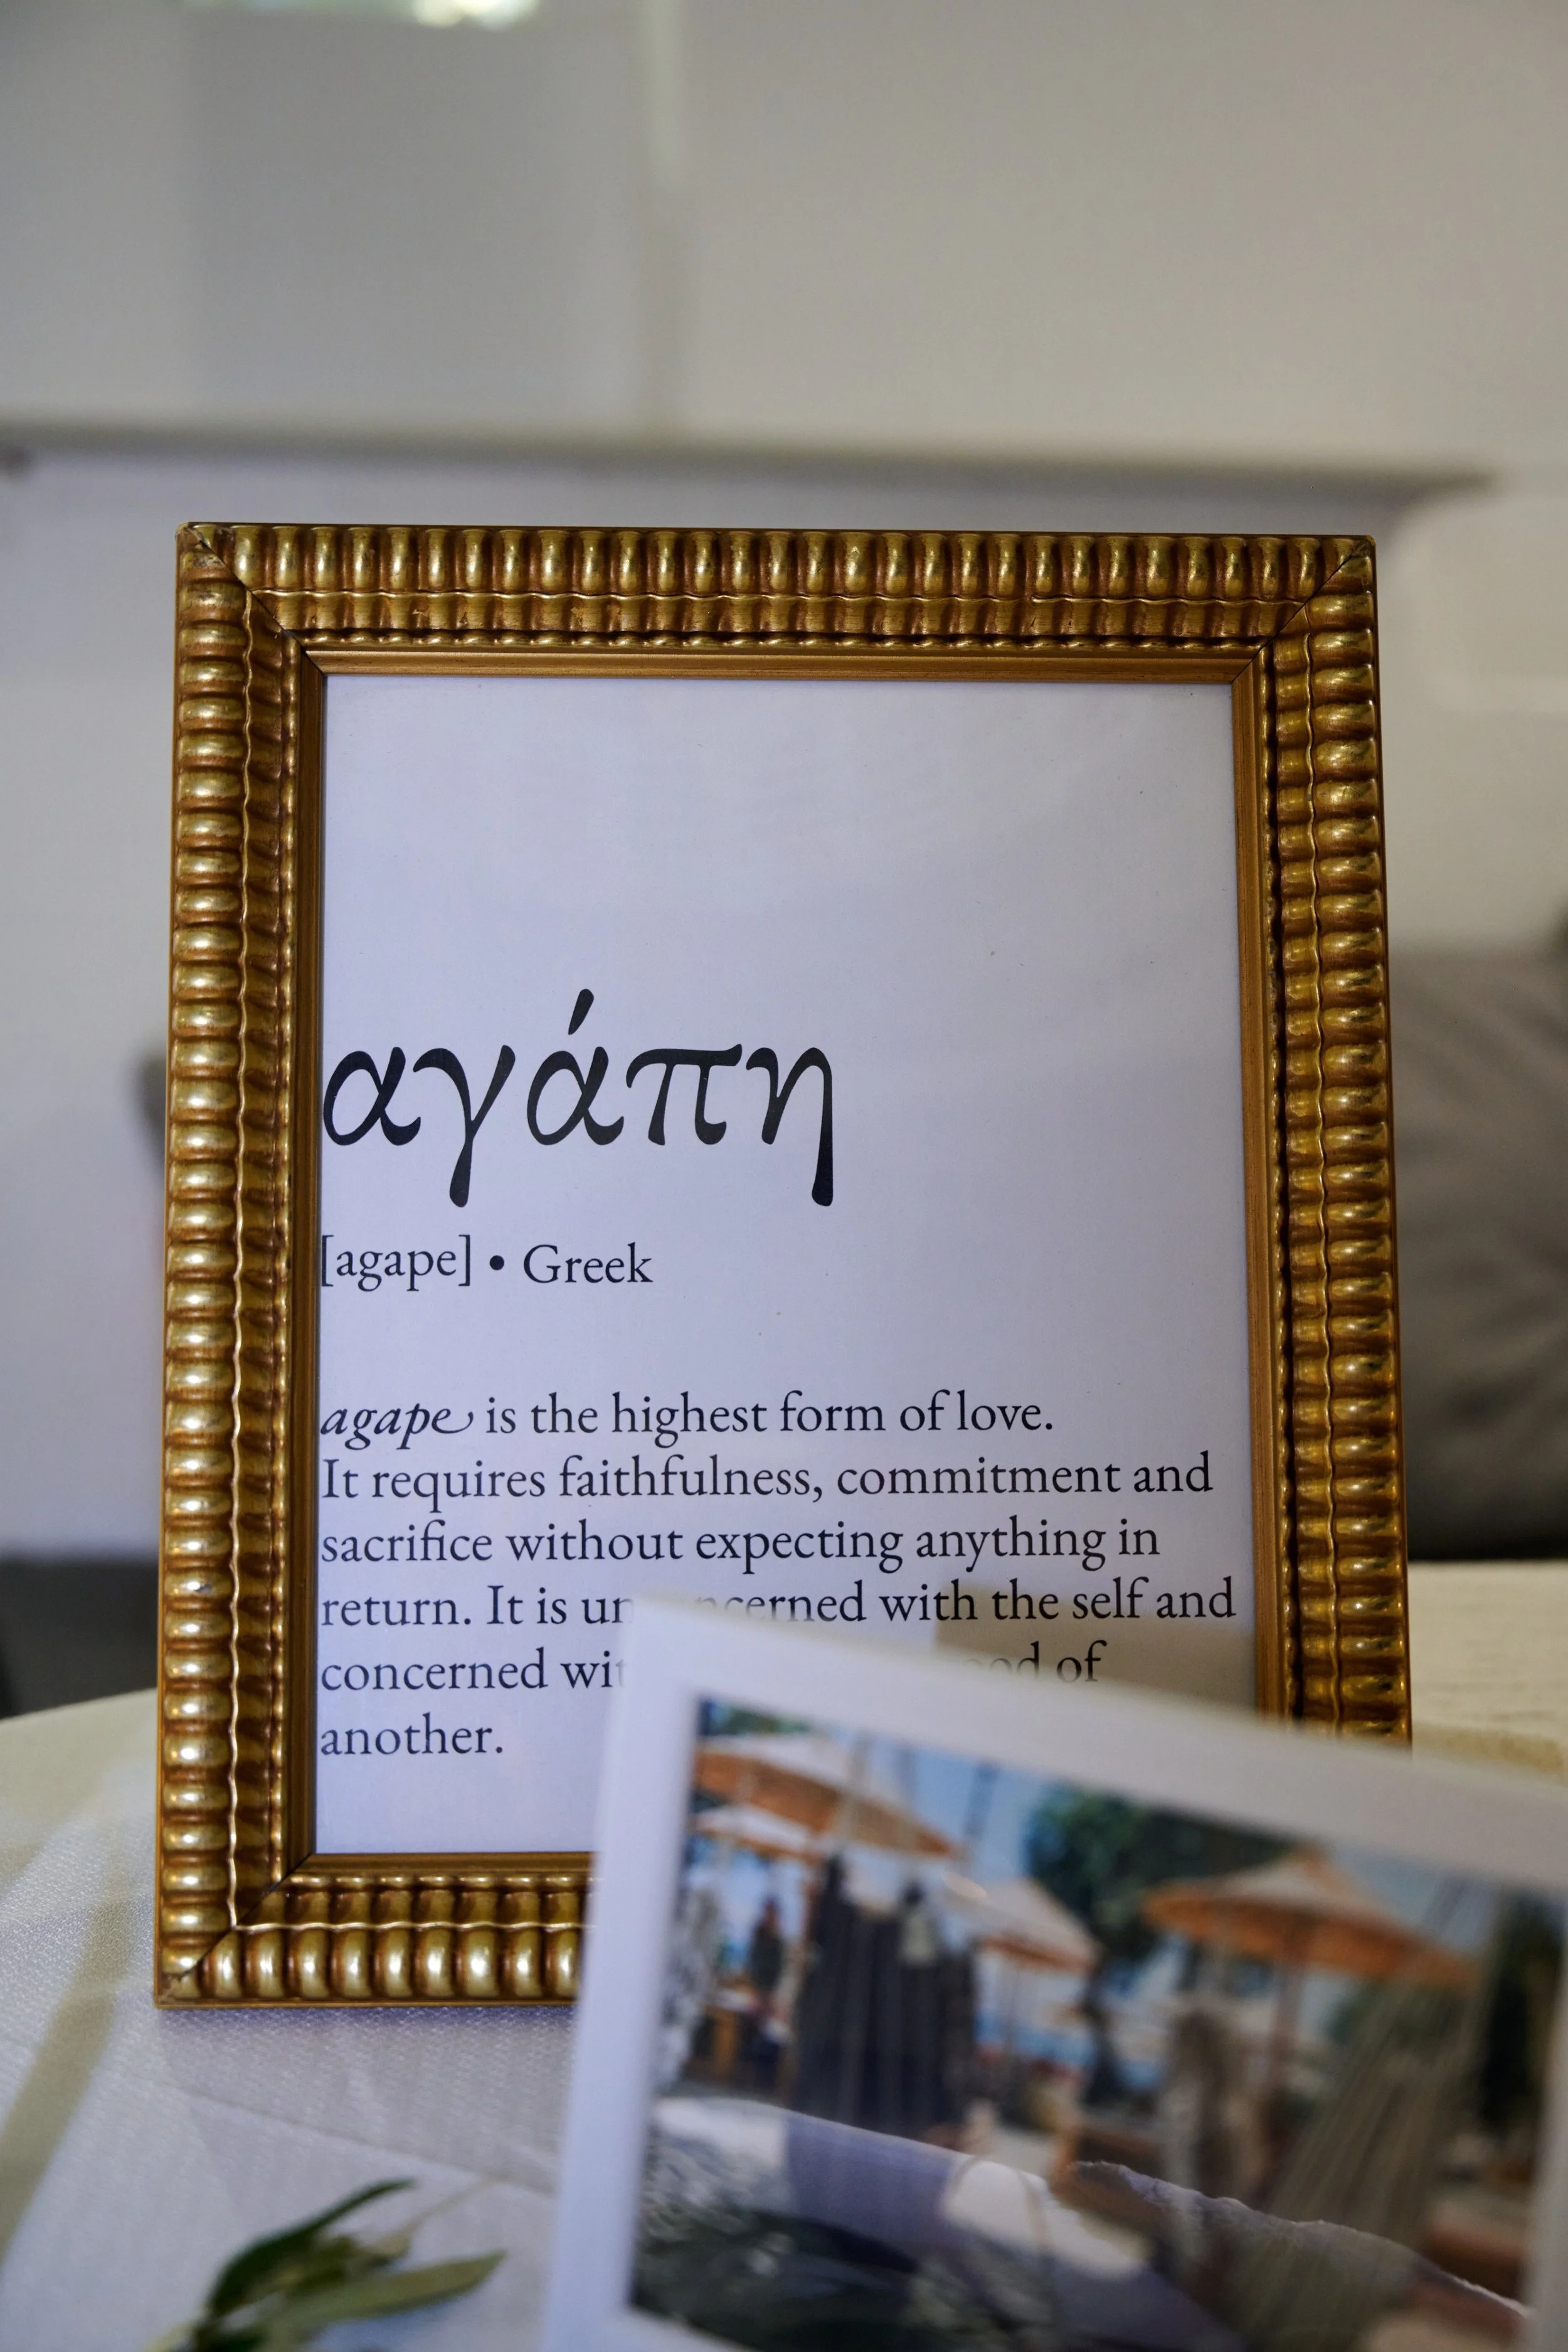 αγάπη
[agape] • Greek
agape is the highest form of love.
It requires faithfulness, commitment and
sacrifice without expecting anything in
return. It is with the self and
concerned of
another.